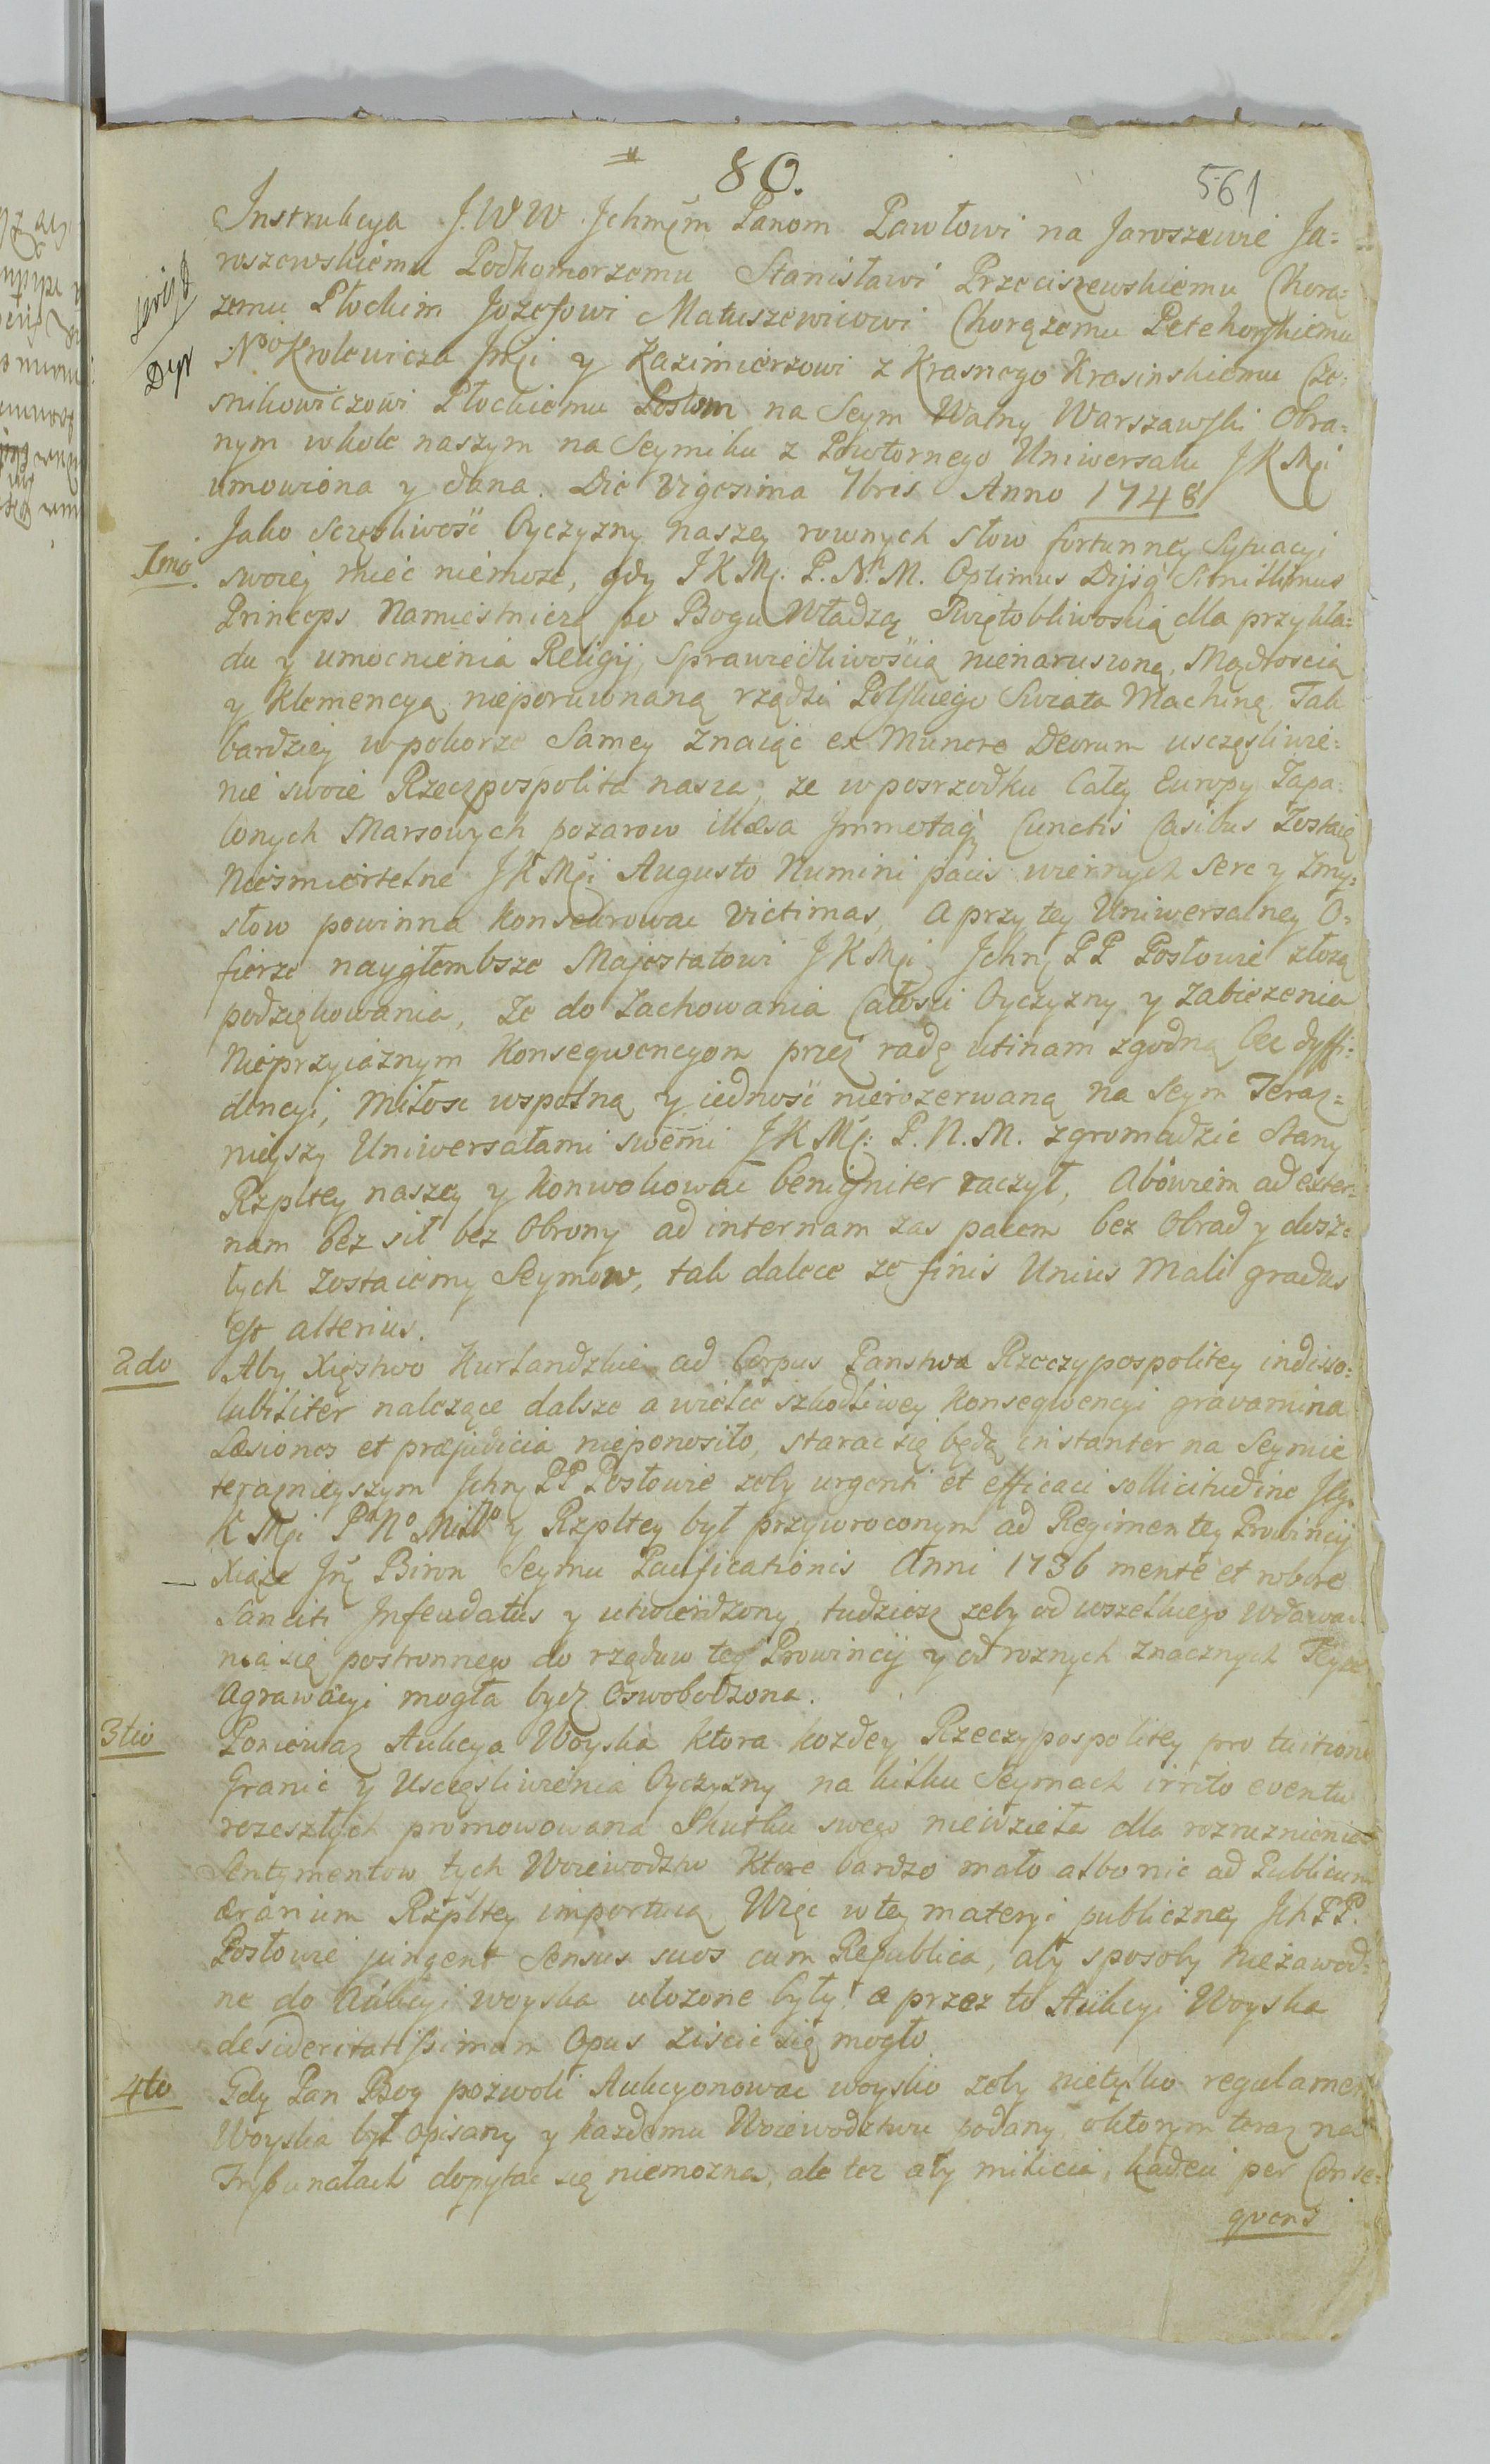 80.
561
Instrukcya J.WW Jchmćm Panom Pawłowi na Jaroszewie Ja=
roszewskiemu Podkomorzemu Stanisławi Przeciszewskiemu Chorą=
zemu Płockim Jozefowi Matuszewicowi Chorązemu Petehorskiemu
Ngo Krolewicza Jmći y Kazimierzowi z Krasnego Krasinskiemu Cze=
snikowiczowi Płockiemu Posłom na Seym Walny Warszawski Obra=
nym w kole naszym na Seymiku z Powtornego Uniwersału JKMći
umowiona y dana. Die Vigesima 7bris Anno 1748
1mo Jako sczęsliwość Oyczyzny naszey rownych słow fortunney Sytuacyi
swoiey mieć niemoze, gdy JKMć. P.N.M. Optimus Dijsq
Princeps Namiestniczą po Bogu Władzą Swiętobliwoscią dla przykła=
du y umocnienia Religij, Sprawiedliwoscią nienaruszoną, Mądroscią
y Klemencyą nieporuwnaną rządzi Polskiego Swiata Machiną. Tak
bardziey w pokorze Samey Znaiąc ex Munere Deorum usczęsliwie=
nie swoie Rzeczpospolita nasza, ze w posrzodku Całey Europy Zapa=
lonych Marsowych pozarow illæsa Jmmotaq Cunctis Casibus Zostaię
Niesmiertelne JKMći Augusto Numini pacis wiernych Serc y Zmy=
słow powinna Konsekrowac Victimas, A przy tey Uniwersalney O=
fierze naygłembsze Majestatowi JKMći Jchm PP Posłowie złozą
podziękowania, Ze do Zachowania Całosci Oyczyzny y Zabiezenia
Nieprzyiaznym Konsequencyom przez radę utinam zgodną bez dyffi=
dencyi, Miłosc wspolną y iednosć nierozerwaną na Seym Teraz=
nieyszy Uniwersałami swemi JKMć: P.N.M. zgromadzic Stany
Rzpltey naszey y Konwokowac benigniter raczył, Abowiem ad exter=
nam bez sił bez Obrony ad internam zas pacem bez Obrad y dosze=
łych zostaiemy Seymow, tak dalece ze finis Unius Mali gradus
est alterius.
2do Aby Xięstwo Kurlandzkie ad Corpus Panstwa Rzeczypospolitey indisso=
lubiliter nalezące dalsze a wielce szkodliwey Konseqwencyi gravamina
Læsiones et præjudicia nieponosiło, starac się będą instanter na Seymie
teraznieyszym Jchm PP Posłowie zeby urgenti et efficaci sollicitudine Jg.
K Mći Pa No Miłgo y Rzpltey był przywroconym ad Regimen tey Prowincij
Xiąze Jmć Biron Seymu Pacificationis Anni 1736 mente et robore
Sanciti Jnfeudatus y utwierdzony, tudziesz zeby od wszelkiego wdawa=
nia się postronnego do rządow tey Prowincij y od roznych Znacznych Teyze
Agrawacyi mogła bydz Oswobodzona.
3tio Poniewaz Aukcya Woyska ktora kozdey Rzeczypospolitey pro tuitione
Granic y Usczęsliwienia Oyczyzny na kilku Seymach irrito eventu
rozeszłych promowowana Skutku swego niewzieła dla rozroznienia
Sentymentow tych Woiewodztw Ktore bardzo mało albo nic ad Publicum
ærarium Rzpltey importuią Więc w tey materyi publiczney Jch PP.
Posłowie jungent Sensus suos cum Republica, aby sposoby niezawod=
ne do Aukcyi woyska ułozone były, a przez to Aukcyi Woyska
desideritatissimum Opus ziscic się mogło.
4to Gdy Pan Bog pozwoli Aukcyonowac woysko zeby nietylko regulamen
Woyska był opisany y kazdemu Woiewodztwu podany, oktorym teraz na
Trybunałach dopytac się niemozna, ale tez aby milicia, kadeci per Conse=
quens